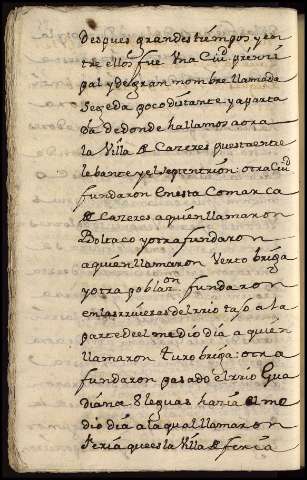 despues grandes tiempos y en
tre ellos fue Vna Ciud. prinçi
pal y de gran nombre llamada
Segeda poco distante y aparta
da de donde hallamos aora
la Villa de Cazeres questa entre
lebante y el septentrion: otra Ciud
fundaron en esta Comarca
de Cazeres a quien llamaron
Boltaco y otra fundaron
a quien llamaron Verto briga
y otra poblaon. fundaron
en las rriueras del rrio tajo a la
parte de el medio dia a quien
llamaron Turo briga: otra
fundaron pasado el rrio Gua
diana 8 leguas hazia el me
dio dia a la qual llamaron
Seria que es la Villa de feria